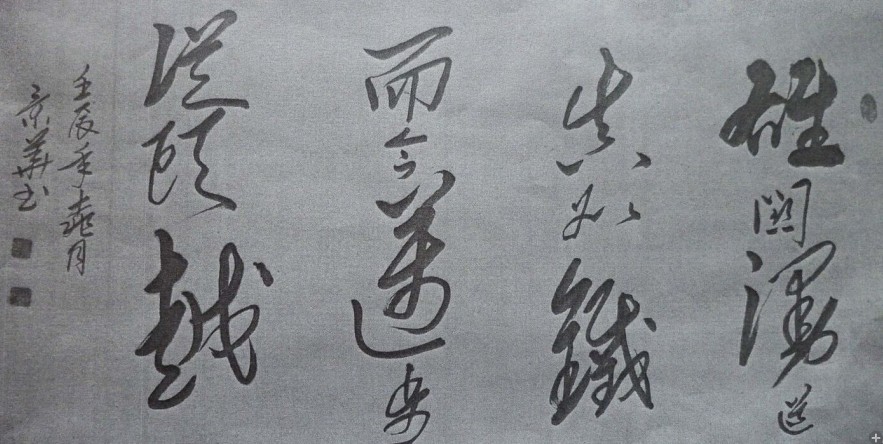 雄關漫道
真如鐵
而今邁步
從頭越
壬辰年月
景華书